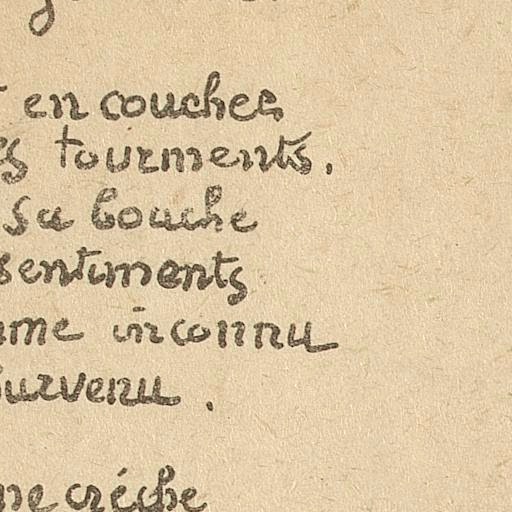 en couches
tourments.
sa bouche
sentiments
inconnu
survenu.
crêche